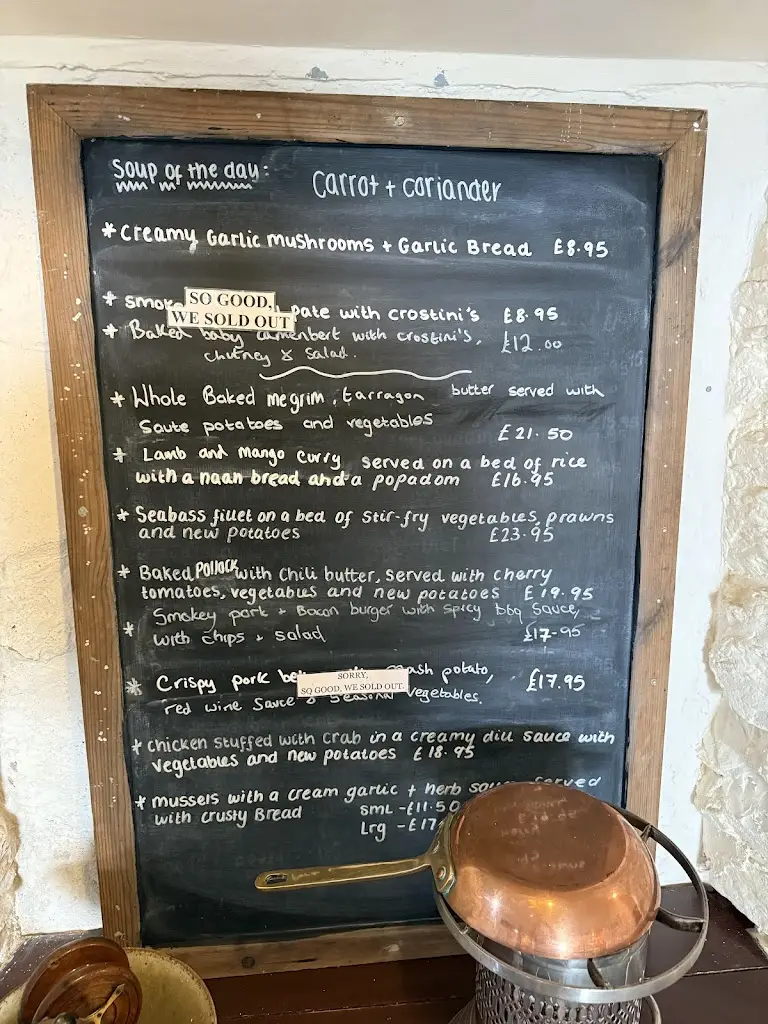 Soup of the day: Carrot + coriander
* Creamy Garlic mushrooms + Garlic Bread £8.95
SO GOOD,
WE SOLD OUT
* smoke pate with crostini's £8.95
* Baked baby camenbert with crostini's, £12.00
chutney & Salad.
* Whole Baked megrim, tarragon butter served with
Saute potatoes and vegetables £21.50
* Lamb and Mango curry served on a bed of rice
with a naan bread and a popadom £16.95
* Seabass fillet on a bed of Stir-fry vegetables, prawns
and new potatoes £23.95
* Baked Pollock with Chili butter, served with cherry
tomatoes, vegetables and new potatoes £19.95
* Smokey pork + Bacon burger with spicy bbq sauce,
with chips + salad £17-95
* Crispy pork mash potato, £17.95
SORRY,
SO GOOD, WE SOLD OUT.
red wine Sauce & Seasonal vegetables.
* chicken stuffed with crab in a creamy dill sauce with
vegetables and new potatoes £18.95
* mussels with a cream garlic + herb sauce served
with crusty Bread sml -£11.50
Lrg -£17